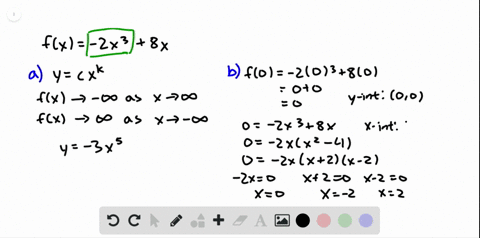 f(x) = -2x³ + 8x
a) y = cx^k
f(x) → -∞ as x → ∞
f(x) → ∞ as x → -∞
y = -3x⁵
b) f(0) = -2(0)³ + 8(0)
= 0 + 0
= 0
y-int: (0,0)
0 = -2x³ + 8x
x-int:
0 = -2x(x² - 4)
0 = -2x(x+2)(x-2)
-2x = 0 x+2 = 0 x-2 = 0
x = 0 x = -2 x = 2